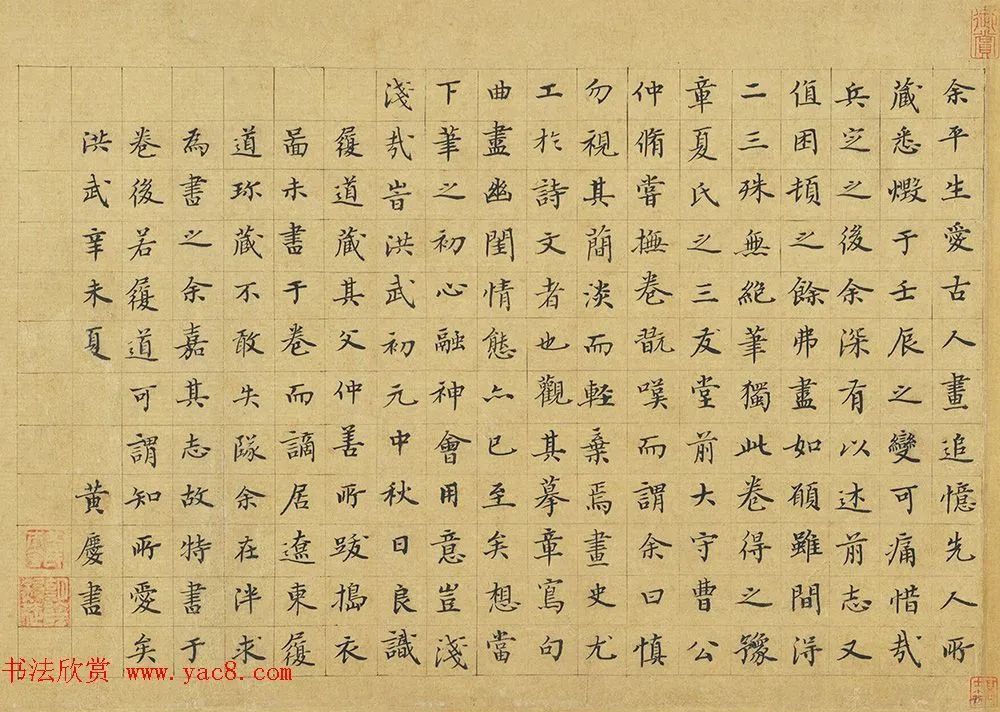 余平生愛古人畫追憶先人所
蔵悉燬于壬辰之變可痛惜㢤
兵定之後余深有以述前志又
值困頓之餘弗盡如願雖間得
二三殊無絶筆獨此卷得之豫
章夏氏之三友堂前大守曹公
仲脩嘗撫卷翫嘆而謂余曰慎
勿視其蕳淡而輕棄焉畫史尤
工於詩文者也觀其摹章寫句
曲盡幽閨情態亦已至矣想當
下筆之初心融神會用意豈淺
淺㢤旹洪武初元中秋日良識
履道蔵其父仲善所跋搗衣
啚未書于卷而謫居遼東履
道珎蔵不敢失隊余在泮求
為書之余嘉其志故特書于
卷後若履道可謂知所愛矣
洪武辛未夏 黄慶書
书法欣赏 www.yac8.com